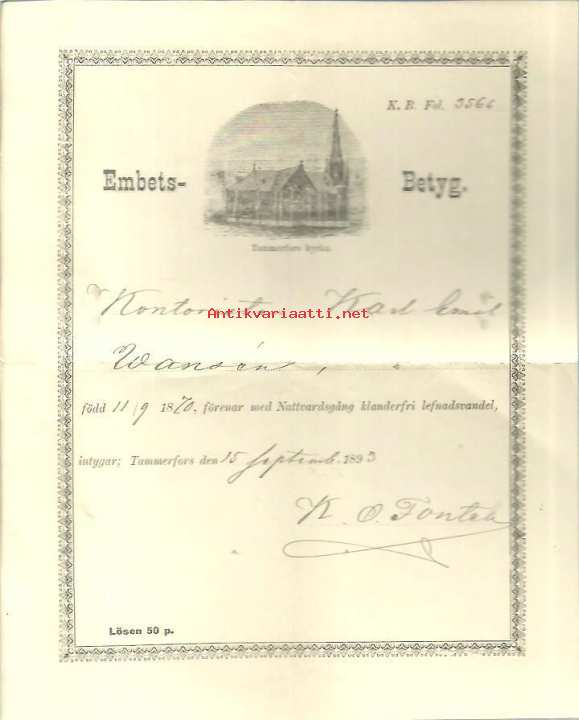 K. B. Fol. 3566
Embets- Betyg.
Tammerfors kyrka.
Kontoristen Karl Emil
Antikvariaatti.net
Wansén,
född 11/9 1870, förenar med Nattvardsgång klanderfri lefnadsvandel,
intygar; Tammerfors den 15 Septemb. 1893
K. O. Fontell
Lösen 50 p.